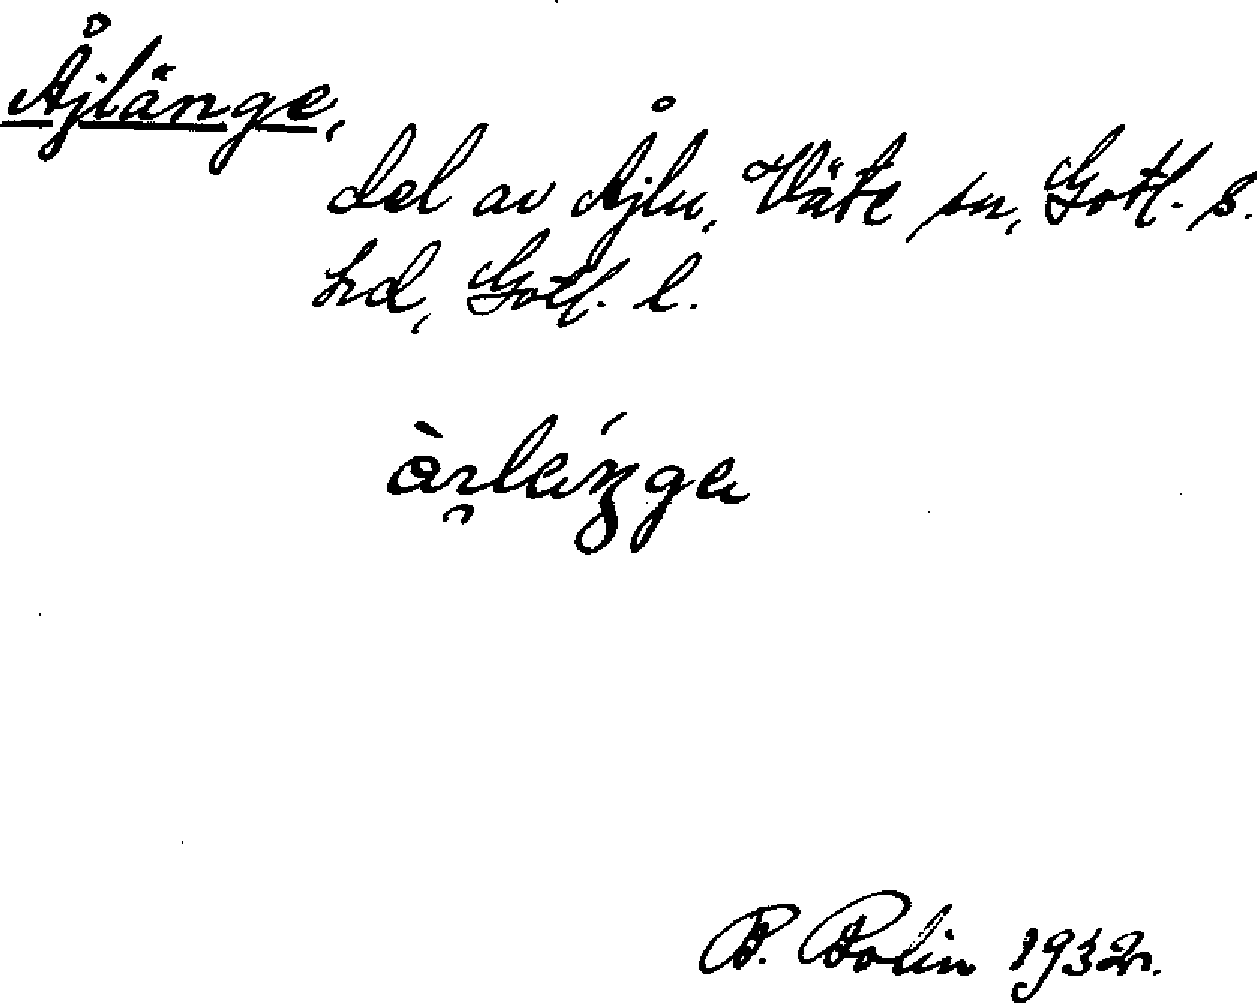 Åjlänge,
del av Åjlu, Väte sn, Gotl. s.
hd, Gotl. l.
B. Bolin 1932.